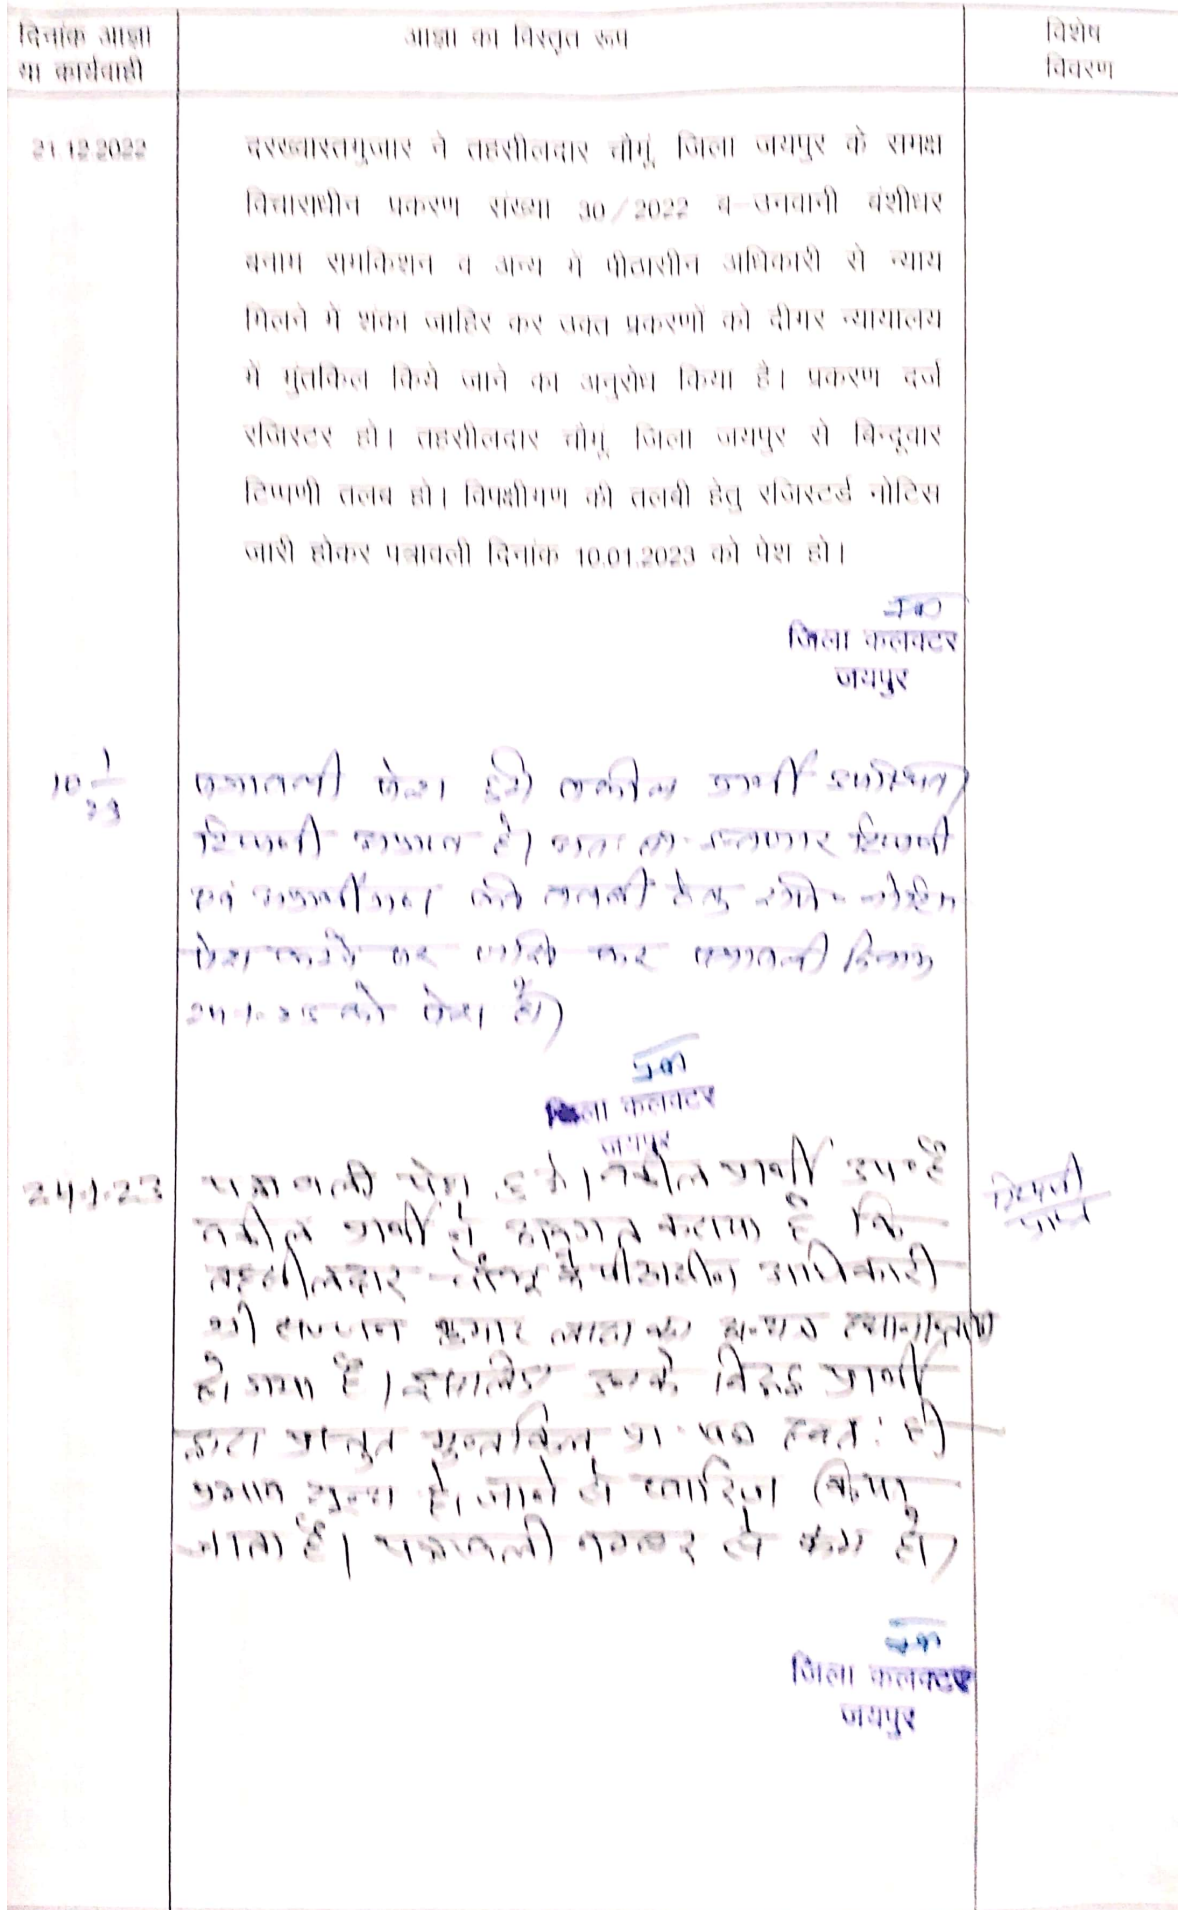 दिनांक आज्ञा
या कार्यवाही
आज्ञा का विस्तृत रूप
विशेष
विवरण
21.12.2022
दरख्वास्तगुजार ने तहसीलदार चौमूं, जिला जयपुर के समक्ष
विचाराधीन प्रकरण संख्या 30/2022 ब-उनवानी बंशीधर
बनाम रामकिशन व अन्य में पीठासीन अधिकारी से न्याय
मिलने में शंका जाहिर कर उक्त प्रकरणों को दीगर न्यायालय
में मुंतकिल किये जाने का अनुरोध किया है। प्रकरण दर्ज
रजिस्टर हो। तहसीलदार चौमूं जिला जयपुर से बिन्दूवार
टिप्पणी तलब हो। विपक्षीगण की तलबी हेतु रजिस्टर्ड नोटिस
जारी होकर पत्रावली दिनांक 10.01.2023 को पेश हो।
जिला कलक्टर
जयपुर
10 1/23
पत्रावली पेश हुई। वकील प्रार्थी उपस्थित।
टिप्पणी अप्राप्त है। अतः टिप्पणी
एवं अप्रार्थीगण की तलबी हेतु रजि० नोटिस
पेश करने पर जारी कर पत्रावली दिनांक
को पेश हो।
जिला कलक्टर
जयपुर
24.1.23
पत्रावली पेश हुई। वकील प्रार्थी उप० है
वकील प्रार्थी ने अवगत कराया है कि
तहसीलदार चौमूं के पीठासीन अधिकारी
श्री कुमार का अन्यत्र स्थानान्तरण
हो गया है। इसलिए उनके विरूद्ध प्रार्थी
द्वारा प्रस्तुत मुन्तकिल प्रा. पत्र स्वतः ही
प्रभाव शून्य हो जाने से खारिज किया
जाता है। पत्रावली नम्बर से कम हो।
टिप्पणी
प्राप्त
जिला कलक्टर
जयपुर